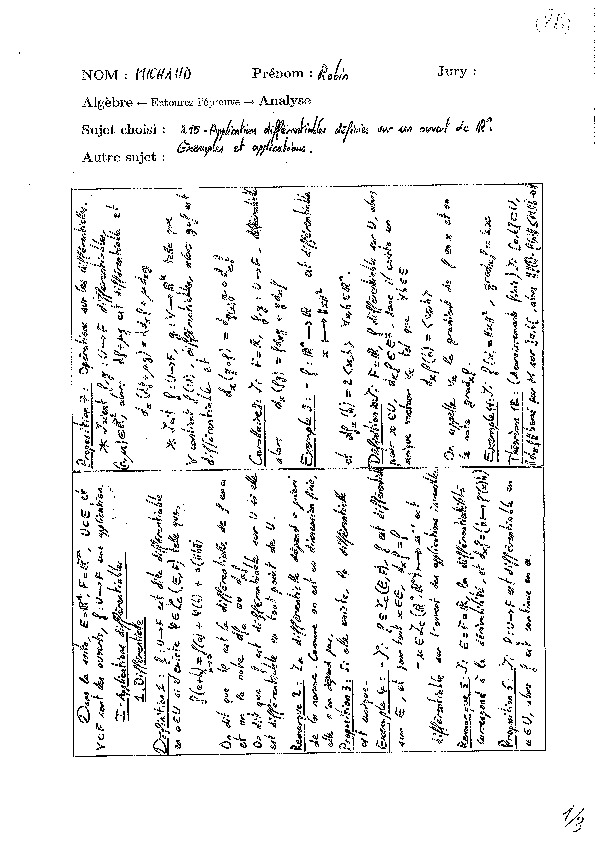 NOM : MICHAUD Prénom : Robin Jury :
Algèbre ← Entourez l'épreuve → Analyse
Sujet choisi : 215 - Applications différentiables définies sur un ouvert de ℝⁿ.
Exemples et applications.
Autre sujet :
Dans la suite, E=ℝⁿ, F=ℝᵐ, U⊂E et
V⊂F sont des ouverts, f: U→F une application.
I - Applications différentiables
1. Différentielle
Définition 1: f: U→F est dite différentiable
en a∈U si il existe φ∈ℒ(E,F) telle que
f(a+h) = f(a) + φ(h) + o(‖h‖)
On dit que φ est la différentielle de f en a
et on la note dfₐ ou
On dit que f est différentiable sur U si elle
est différentiable en tout point de U.
Remarque 2: La différentielle dépend a priori
de la norme. Comme on est en dimension finie,
elle n'en dépend pas.
Proposition 3: Si elle existe, la différentielle
est unique.
Exemple 4: - Si f∈ℒ(E,F), f est différentiable
sur E et pour tout x∈E, dₓf = f
différentiable sur l'ouvert des applications inversibles.
Remarque 5: Si E=F=ℝ, la différentiabilité
correspond à la dérivabilité, et dₐf = (h→f'(a)h)
Proposition 6: Si f: U→F est différentiable en
a∈U, alors f est continue en a.
Proposition 7: Opérations sur les différentielles.
* Soient f,g: U→F différentiables,
(λ,μ)∈ℝ², alors λf+μg est différentiable et
dₓ(λf+μg) = λdₓf + μdₓg
* Soit f: U→F, g: V→ℝᵏ telle que
V contient f(U), différentiables, alors g∘f est
différentiable et
dₓ(g∘f) = d_f(x) g ∘ dₓf
Corollaire 8: Si F=ℝ, f,g: U→F, différentiables
alors dₓ(fg) = f dₓg + g dₓf
Exemple 9: - f: ℝⁿ→ℝ est différentiable
x ↦ ‖x‖²
et dfₓ(h) = 2⟨x,h⟩ ∀x,h∈ℝⁿ.
Définition 10: Si F=ℝ, f différentiable sur U, alors
pour x∈U, dₓf∈E*, donc il existe un
unique vecteur v tel que ∀h∈E
dₓf(h) = ⟨v,h⟩
On appelle v le gradient de f en x et on
le note gradₓf.
Exemple 11: Si f(x)=‖x‖², gradₓf = 2x
Théorème 12: (Accroissements finis) Si [a,b]⊂U,
1/3